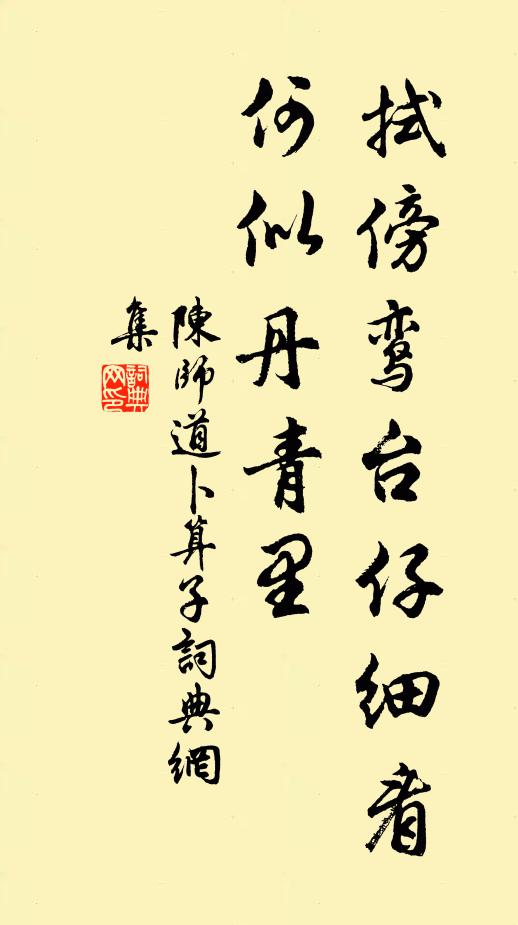 拭傍鸾台仔细看
何似丹青里
陳師道卜算子詞典網
集
詞典
网印